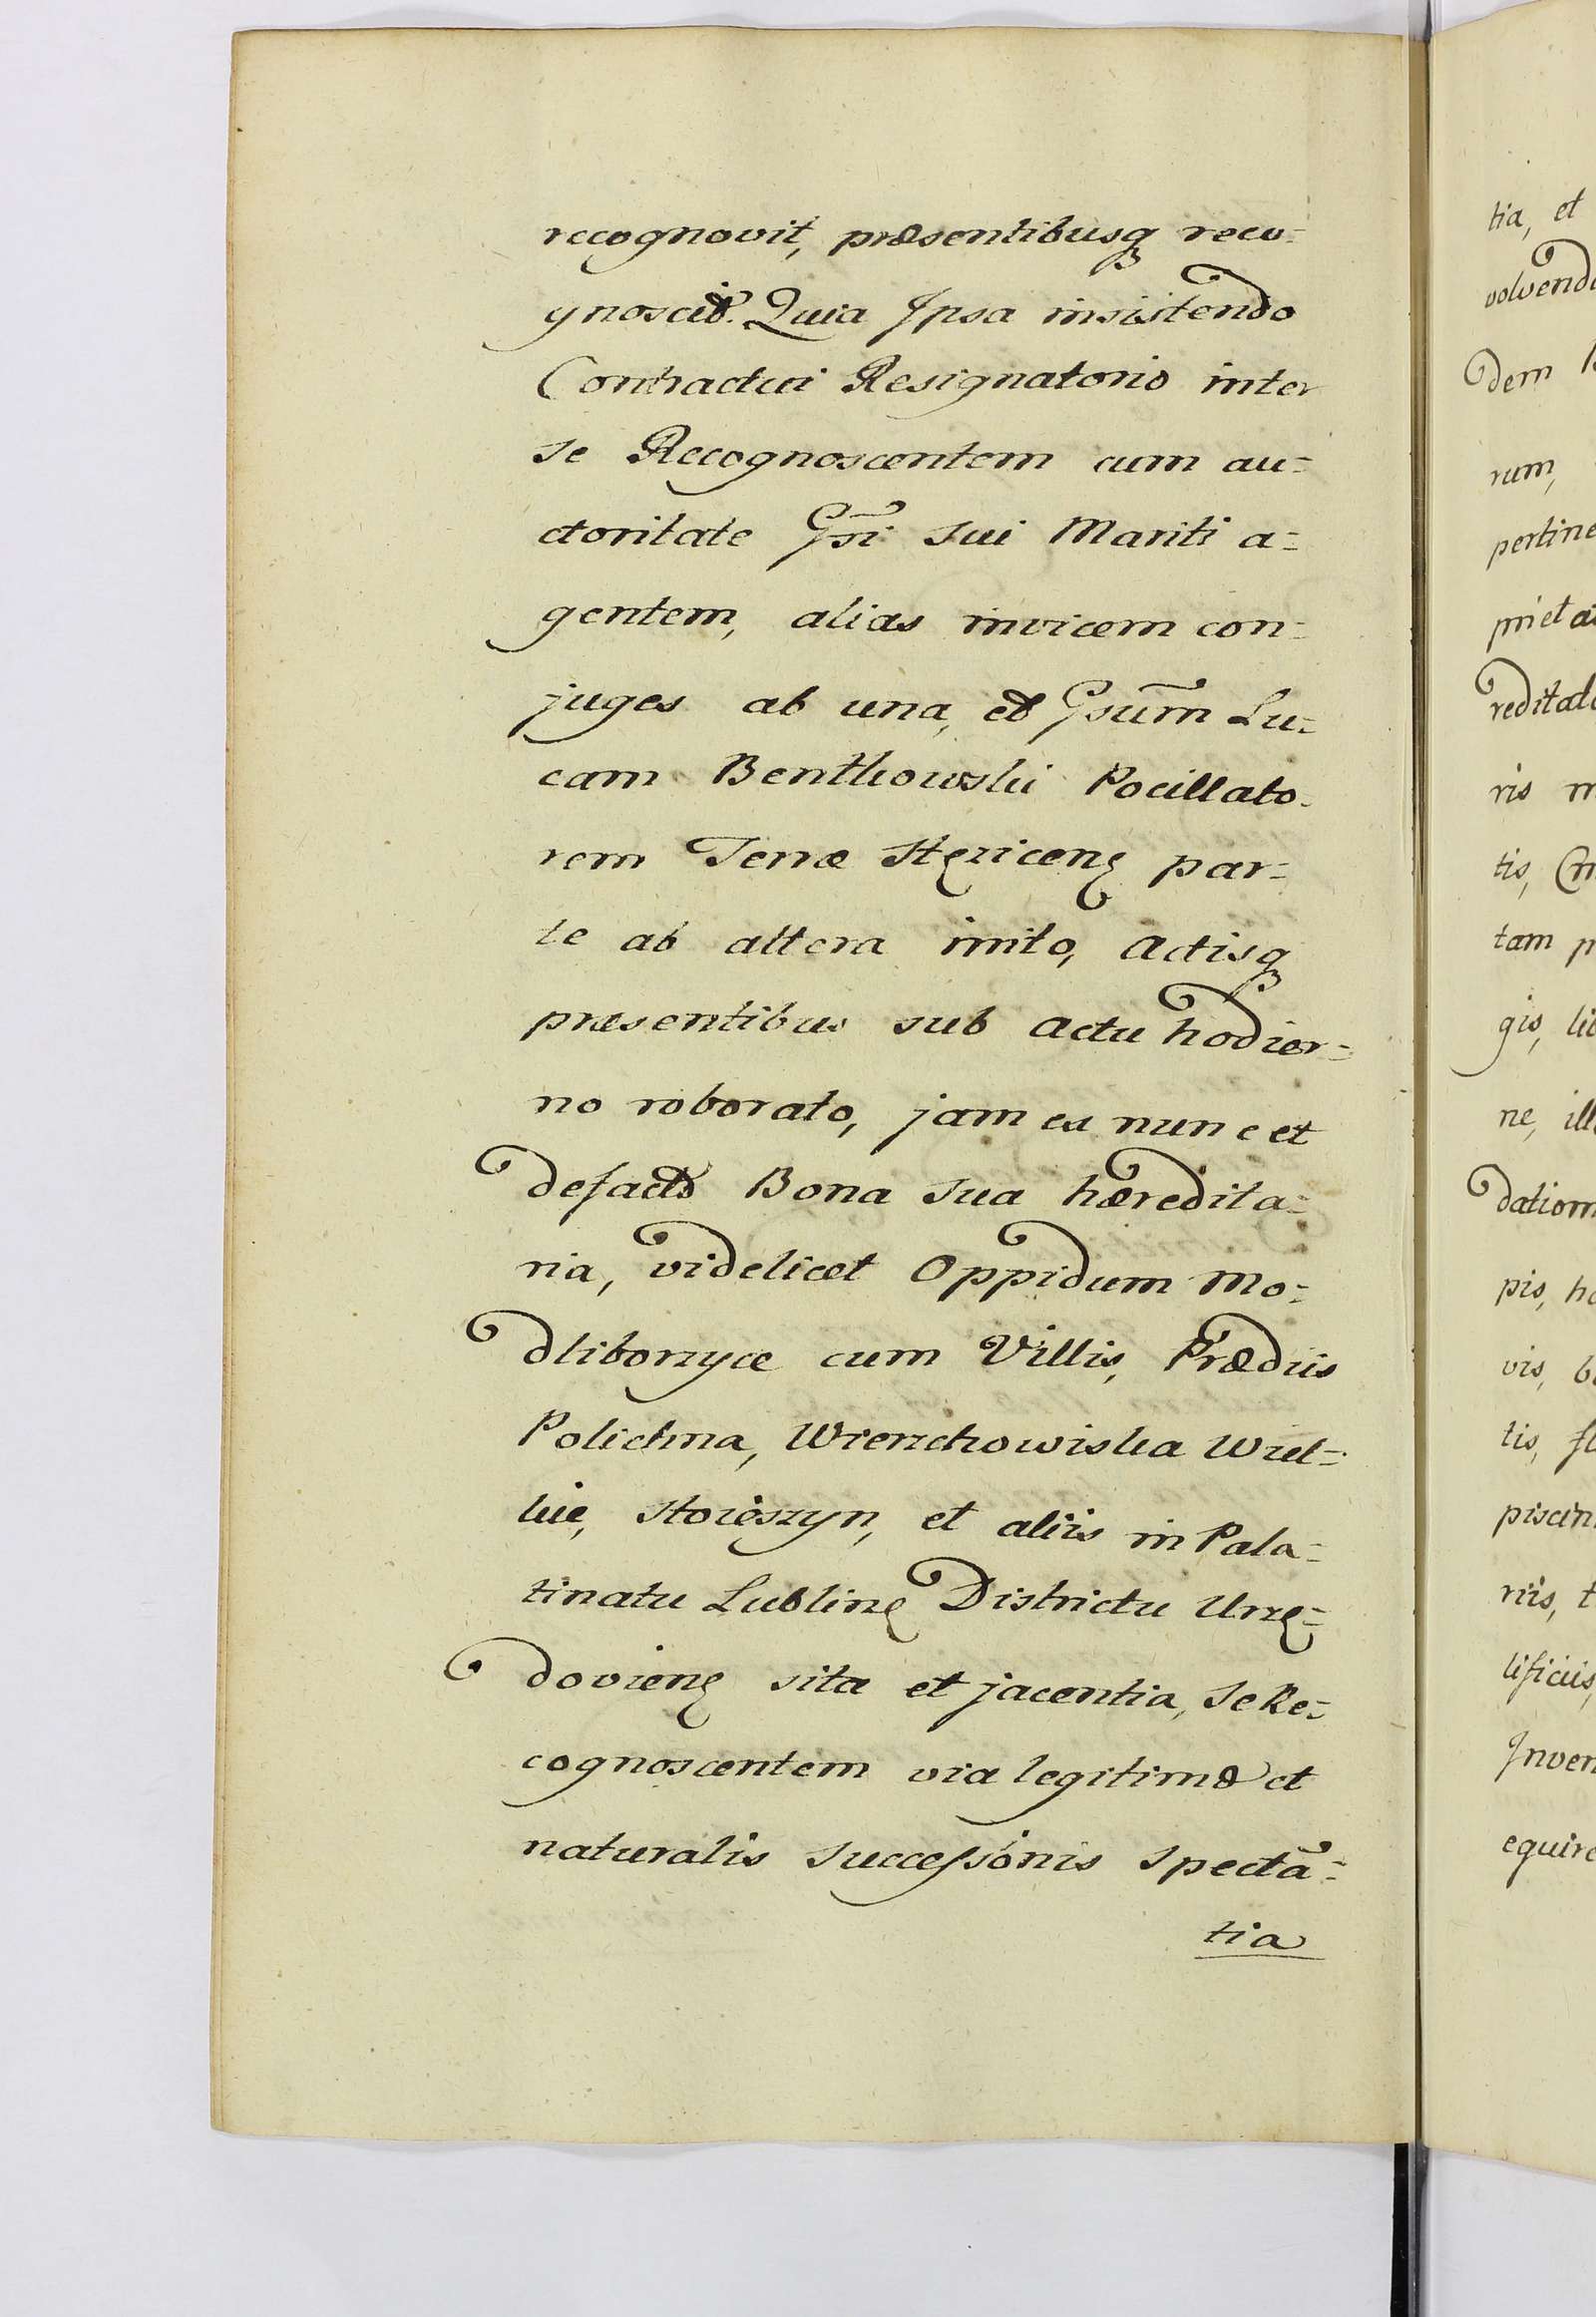 recognovit, præsentibusq reco-
gnoscit. Quia Ipsa insistendo
Contractui Resignatorio inter
se Recognoscentem cum au=
ctoritate Gsi sui Mariti a=
gentem, alias invicem con=
juges ab una, et Gsum Lu=
cam Benthowski Pocillato-
rem Terræ Stęzicenę par=
te ab altera inito, actisq
præsentibus sub actu hodier=
no roborato, jam ex nunc et
defacto Bona sua hæredita=
ria, videlicet Oppidum Mo=
dliborzyce cum Villis, Prædiis
Polichna, Wierzchowiska Wiel=
kie, Stoieszyn, et aliis in Pala=
tinatu Lublinę Districtu Urzę=
dovienę sita et jacentia, se Re=
cognoscentem via legitimæ et
naturalis successionis spectã=
tia
tia, et
volvend
dem
rum,
pertine
prieta
redital
ris
tis,
tam
gis,
ne, ill
dation
pis,
vis,
tis,
piscin
riis,
lificiis,
Inven
equire